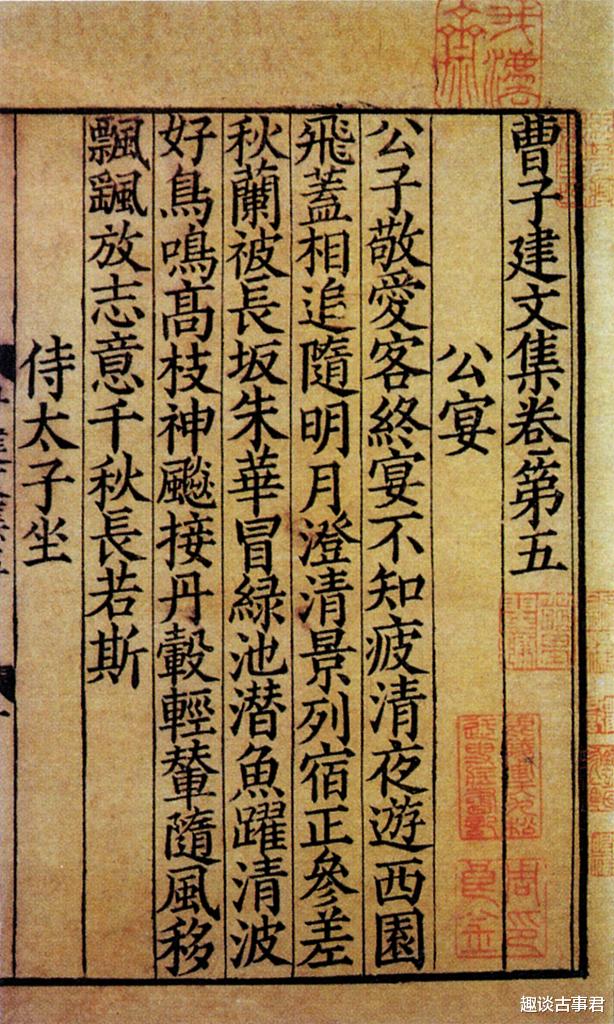 曹子建文集卷第五
公宴
公子敬愛客終宴不知疲清夜遊西園
飛蓋相追隨明月澄清景列宿正參差
秋蘭被長坂朱華冒緑池潜魚躍清波
好鳥鳴髙枝神飈接丹轂輕輦隨風移
飄颻放志意千秋長若斯
侍太子坐
趣谈古事君